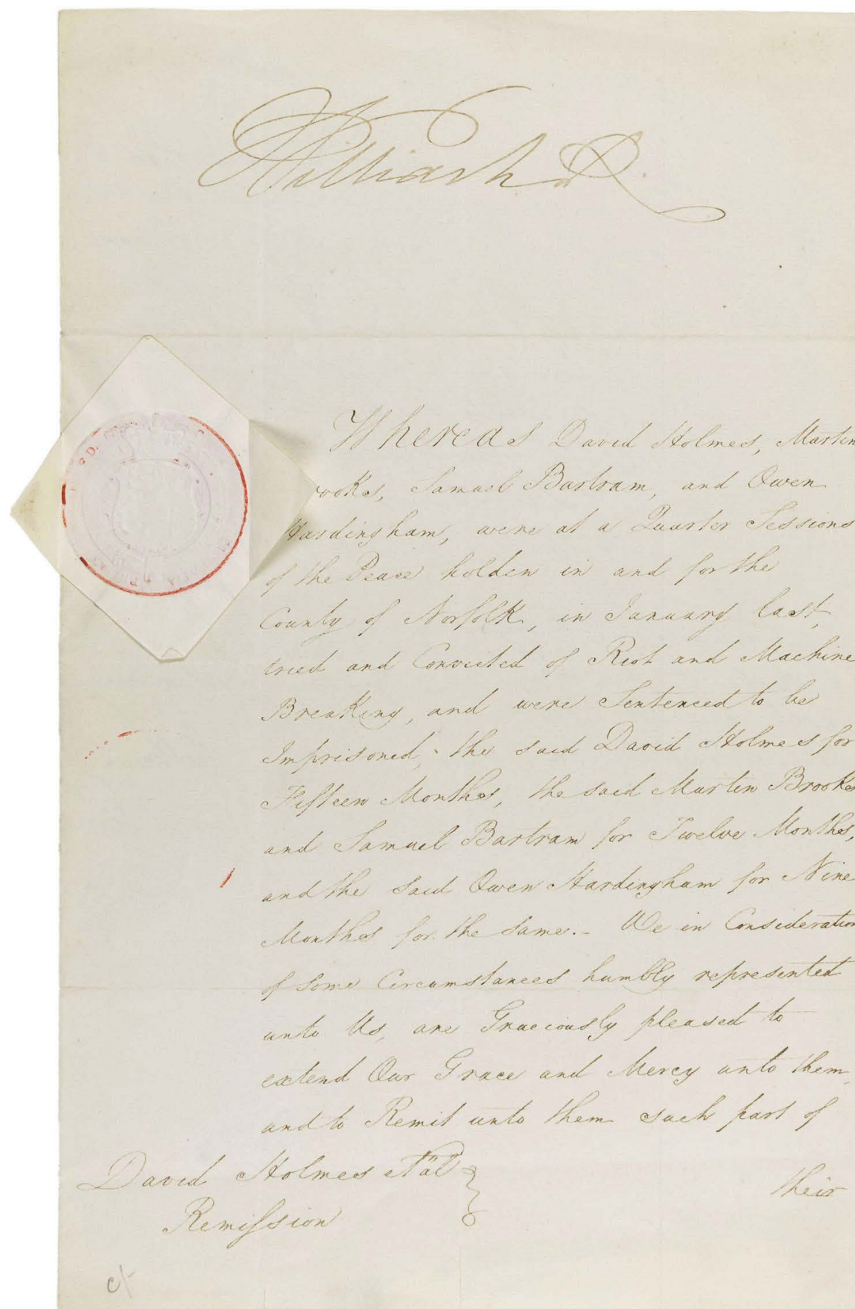 William R.
Whereas David Holmes, Martin
rookes, Samuel Bartram, and Owen
Hardingham, were at a Quarter Sessions
of the Peace holden in and for the
County of Norfolk, in January last,
tried and Convicted of Riot and Machine
Breaking, and were Sentenced to be
Imprisoned, - the said David Holmes for
Fifteen Months, the said Martin Brookes
and Samuel Bartram for Twelve Months,
and the said Owen Hardingham for Nine
Months for the same. - We in Consideration
of some Circumstances humbly represented
unto Us, are Graciously pleased to
extend Our Grace and Mercy unto them,
and to Remit unto them such part of
their
David Holmes et al
Remission